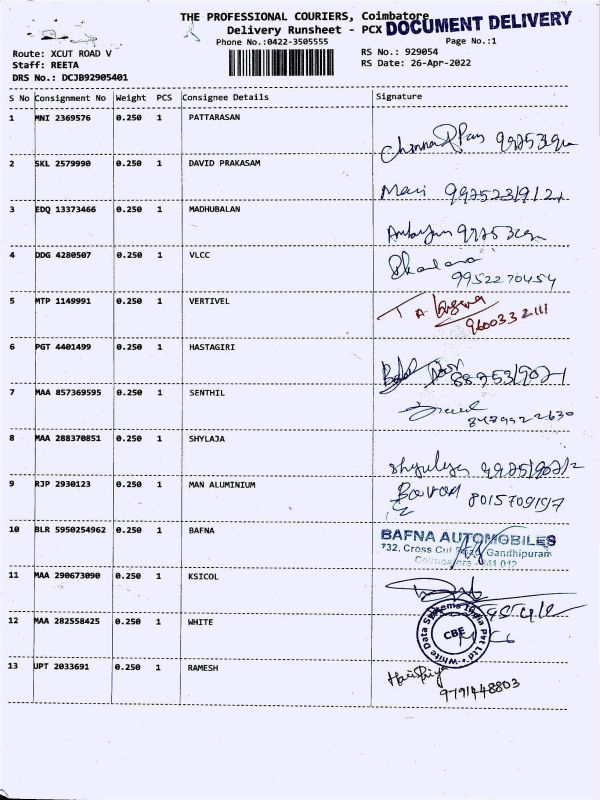 THE PROFESSIONAL COURIERS, Coimbatore
Delivery Runsheet - PCX DOCUMENT DELIVERY
Phone No.:0422-3505555 Page No.:1
Route: XCUT ROAD V RS No.: 929054
Staff: REETA RS Date: 26-Apr-2022
DRS No.: DCJB92905401
S No Consignment No Weight PCS Consignee Details Signature
1 MNI 2369576 0.250 1 PATTARASAN
2 SKL 2579990 0.250 1 DAVID PRAKASAM
3 EDQ 13373466 0.250 1 MADHUBALAN
4 DDG 4280507 0.250 1 VLCC
9952270454
5 MTP 1149991 0.250 1 VERTIVEL
9600332111
6 PGT 4401499 0.250 1 HASTAGIRI
7 MAA 857369595 0.250 1 SENTHIL
8 MAA 288370851 0.250 1 SHYLAJA
9 RJP 2930123 0.250 1 MAN ALUMINIUM
8015709197
10 BLR 5950254962 0.250 1 BAFNA
BAFNA AUTOMOBILES
732, Cross Cut Road, Gandhipuram
11 MAA 290673090 0.250 1 KSICOL
12 MAA 282558425 0.250 1 WHITE
White Data Systems India Pvt Ltd
CBE
13 JPT 2033691 0.250 1 RAMESH
9791448803